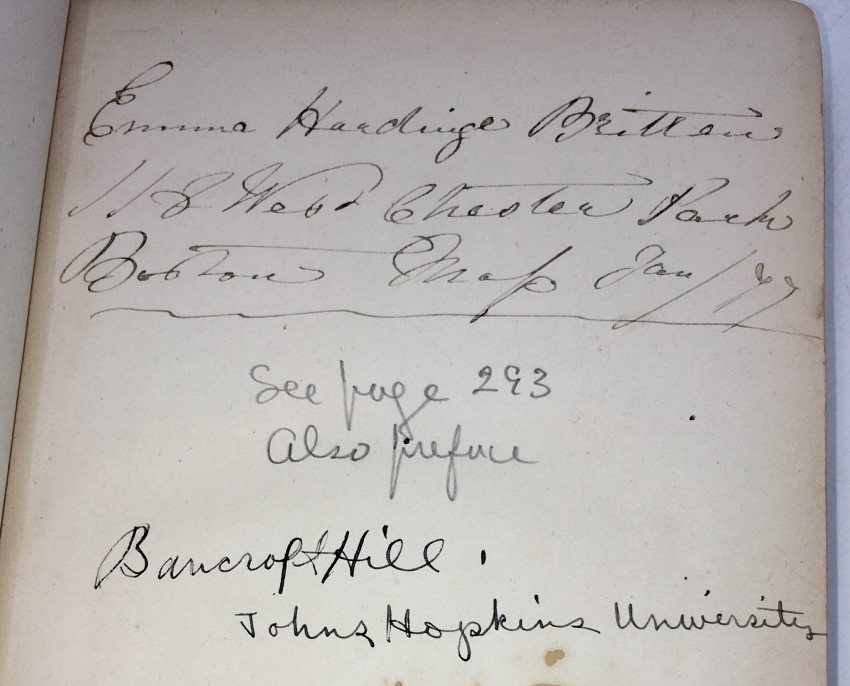 Emma Hardinge Britten
118 West Chester Park
Boston Mass Jan/77
See page 293
Also preface
Bancroft Hill.
Johns Hopkins University